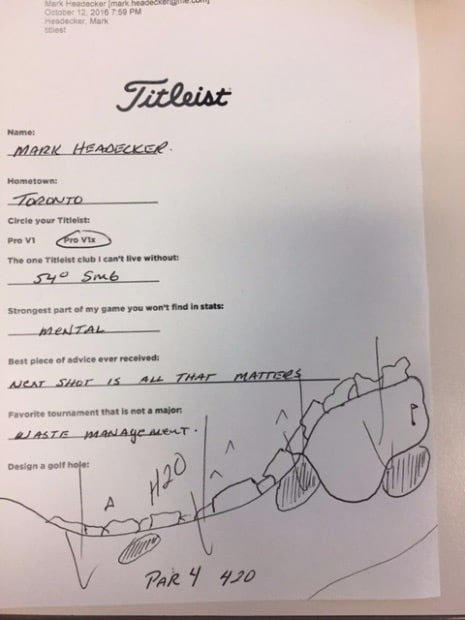 Mark Headecker [mark.headecker@me.com]
October 12, 2016 7:59 PM
Headecker, Mark
titliest
Titleist
Name:
MARK HEADECKER.
Hometown:
TORONTO
Circle your Titleist:
Pro V1 Pro V1x
The one Titleist club I can't live without:
54° SM6
Strongest part of my game you won't find in stats:
MENTAL
Best piece of advice ever received:
NEXT SHOT IS ALL THAT MATTERS
Favorite tournament that is not a major:
WASTE MANAGEMENT.
Design a golf hole:
H2O
PAR 4 420